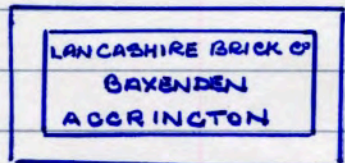 LANCASHIRE BRICK Co
BAXENDEN
ACCRINGTON